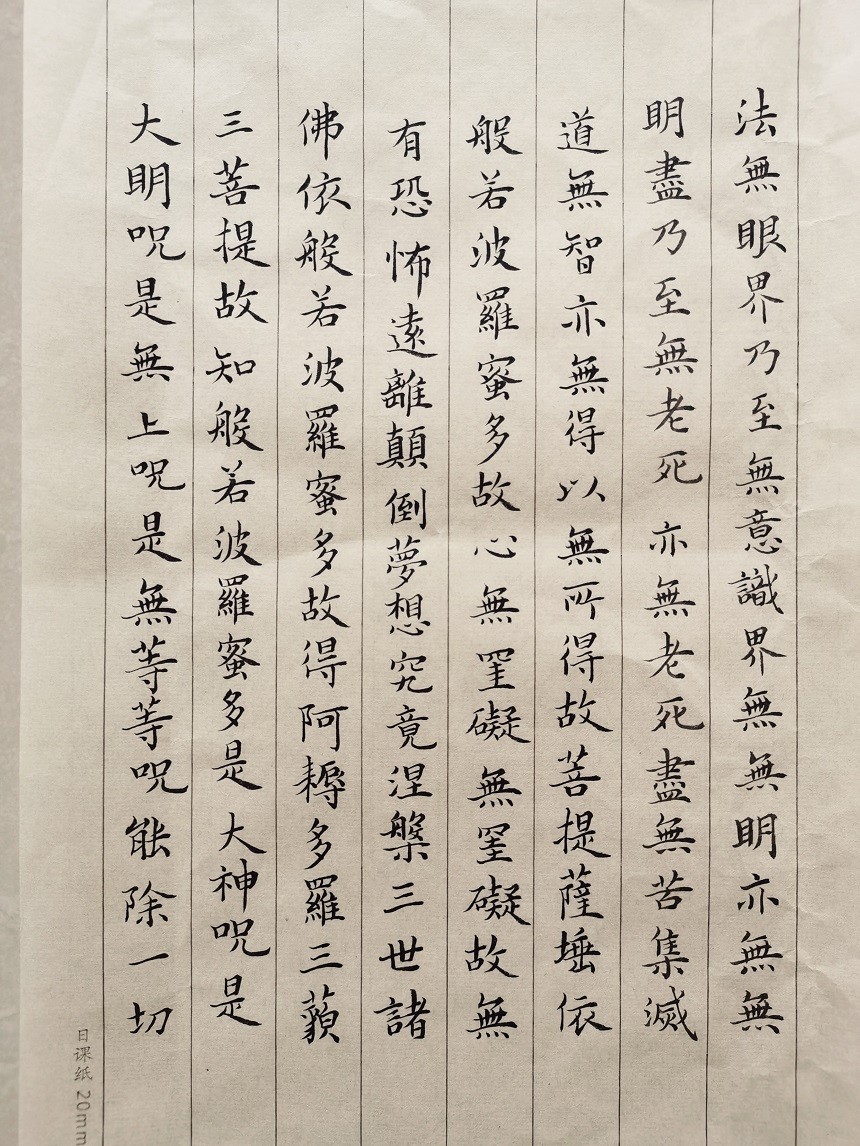 法無眼界乃至無意識界無無明亦無無
明盡乃至無老死亦無老死盡無苦集滅
道無智亦無得以無所得故菩提薩埵依
般若波羅蜜多故心無罣礙無罣礙故無
有恐怖遠離顛倒夢想究竟涅槃三世諸
佛依般若波羅蜜多故得阿耨多羅三藐
三菩提故知般若波羅蜜多是大神咒是
大明咒是無上咒是無等等咒能除一切
日课纸 20mm